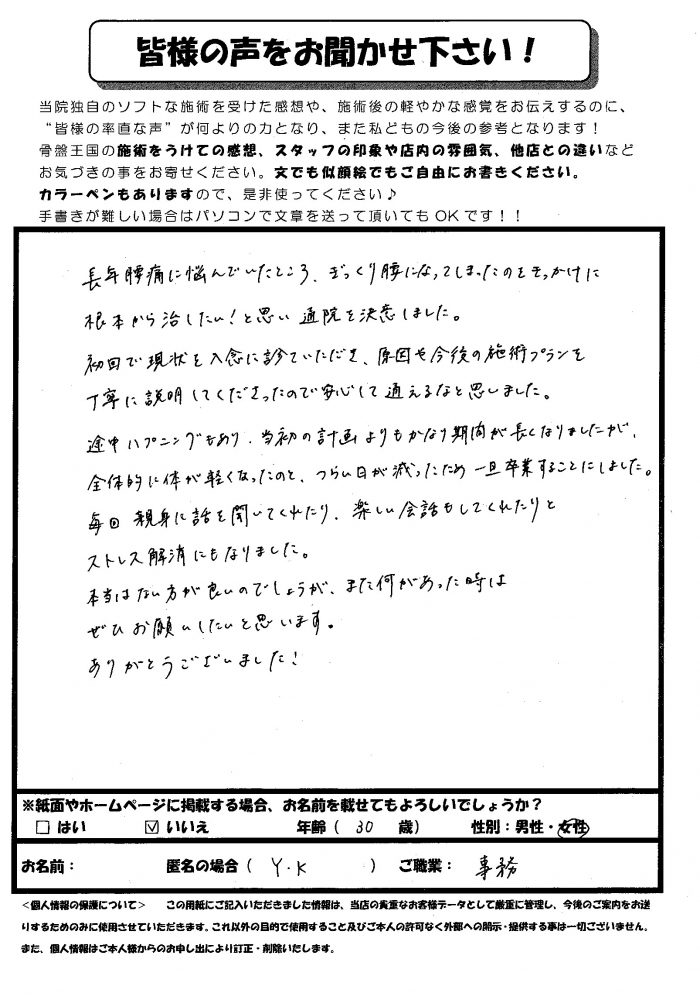 皆様の声をお聞かせ下さい！
当院独自のソフトな施術を受けた感想や、施術後の軽やかな感覚をお伝えするのに、
“皆様の率直な声”が何よりの力となり、また私どもの今後の参考となります！
骨盤王国の施術をうけての感想、スタッフの印象や店内の雰囲気、他店との違いなど
お気づきの事をお寄せください。文でも似顔絵でもご自由にお書きください。
カラーペンもありますので、是非使ってください♪
手書きが難しい場合はパソコンで文章を送って頂いてもOKです！！
長年腰痛に悩んでいたところ、ぎっくり腰になってしまったのをきっかけに
根本から治したい！と思い通院を決意しました。
初回で現状を入念に診ていただき、原因や今後の施術プランを
丁寧に説明してくださったので安心して通えるなと思いました。
途中ハプニングもあり、当初の計画よりもかなり期間が長くなりましたが、
全体的に体が軽くなったのと、つらい日が減ったため一旦卒業することにしました。
毎回親身に話を聞いてくれたり、楽しい会話もしてくれたりと
ストレス解消にもなりました。
本当はない方が良いのでしょうが、また何があった時は
ぜひお願いしたいと思います。
ありがとうございました！
※紙面やホームページに掲載する場合、お名前を載せてもよろしいでしょうか？
□ はい ☑ いいえ 年齢（ 30 歳） 性別：男性・女性
お名前： 匿名の場合（ Y.K ） ご職業： 事務
＜個人情報の保護について＞ この用紙にご記入いただきました情報は、当店の貴重なお客様データとして厳重に管理し、今後のご案内をお送
りするためのみに使用させていただきます。これ以外の目的で使用すること及びご本人の許可なく外部への開示・提供する事は一切ございません。
また、個人情報はご本人様からのお申し出により訂正・削除いたします。